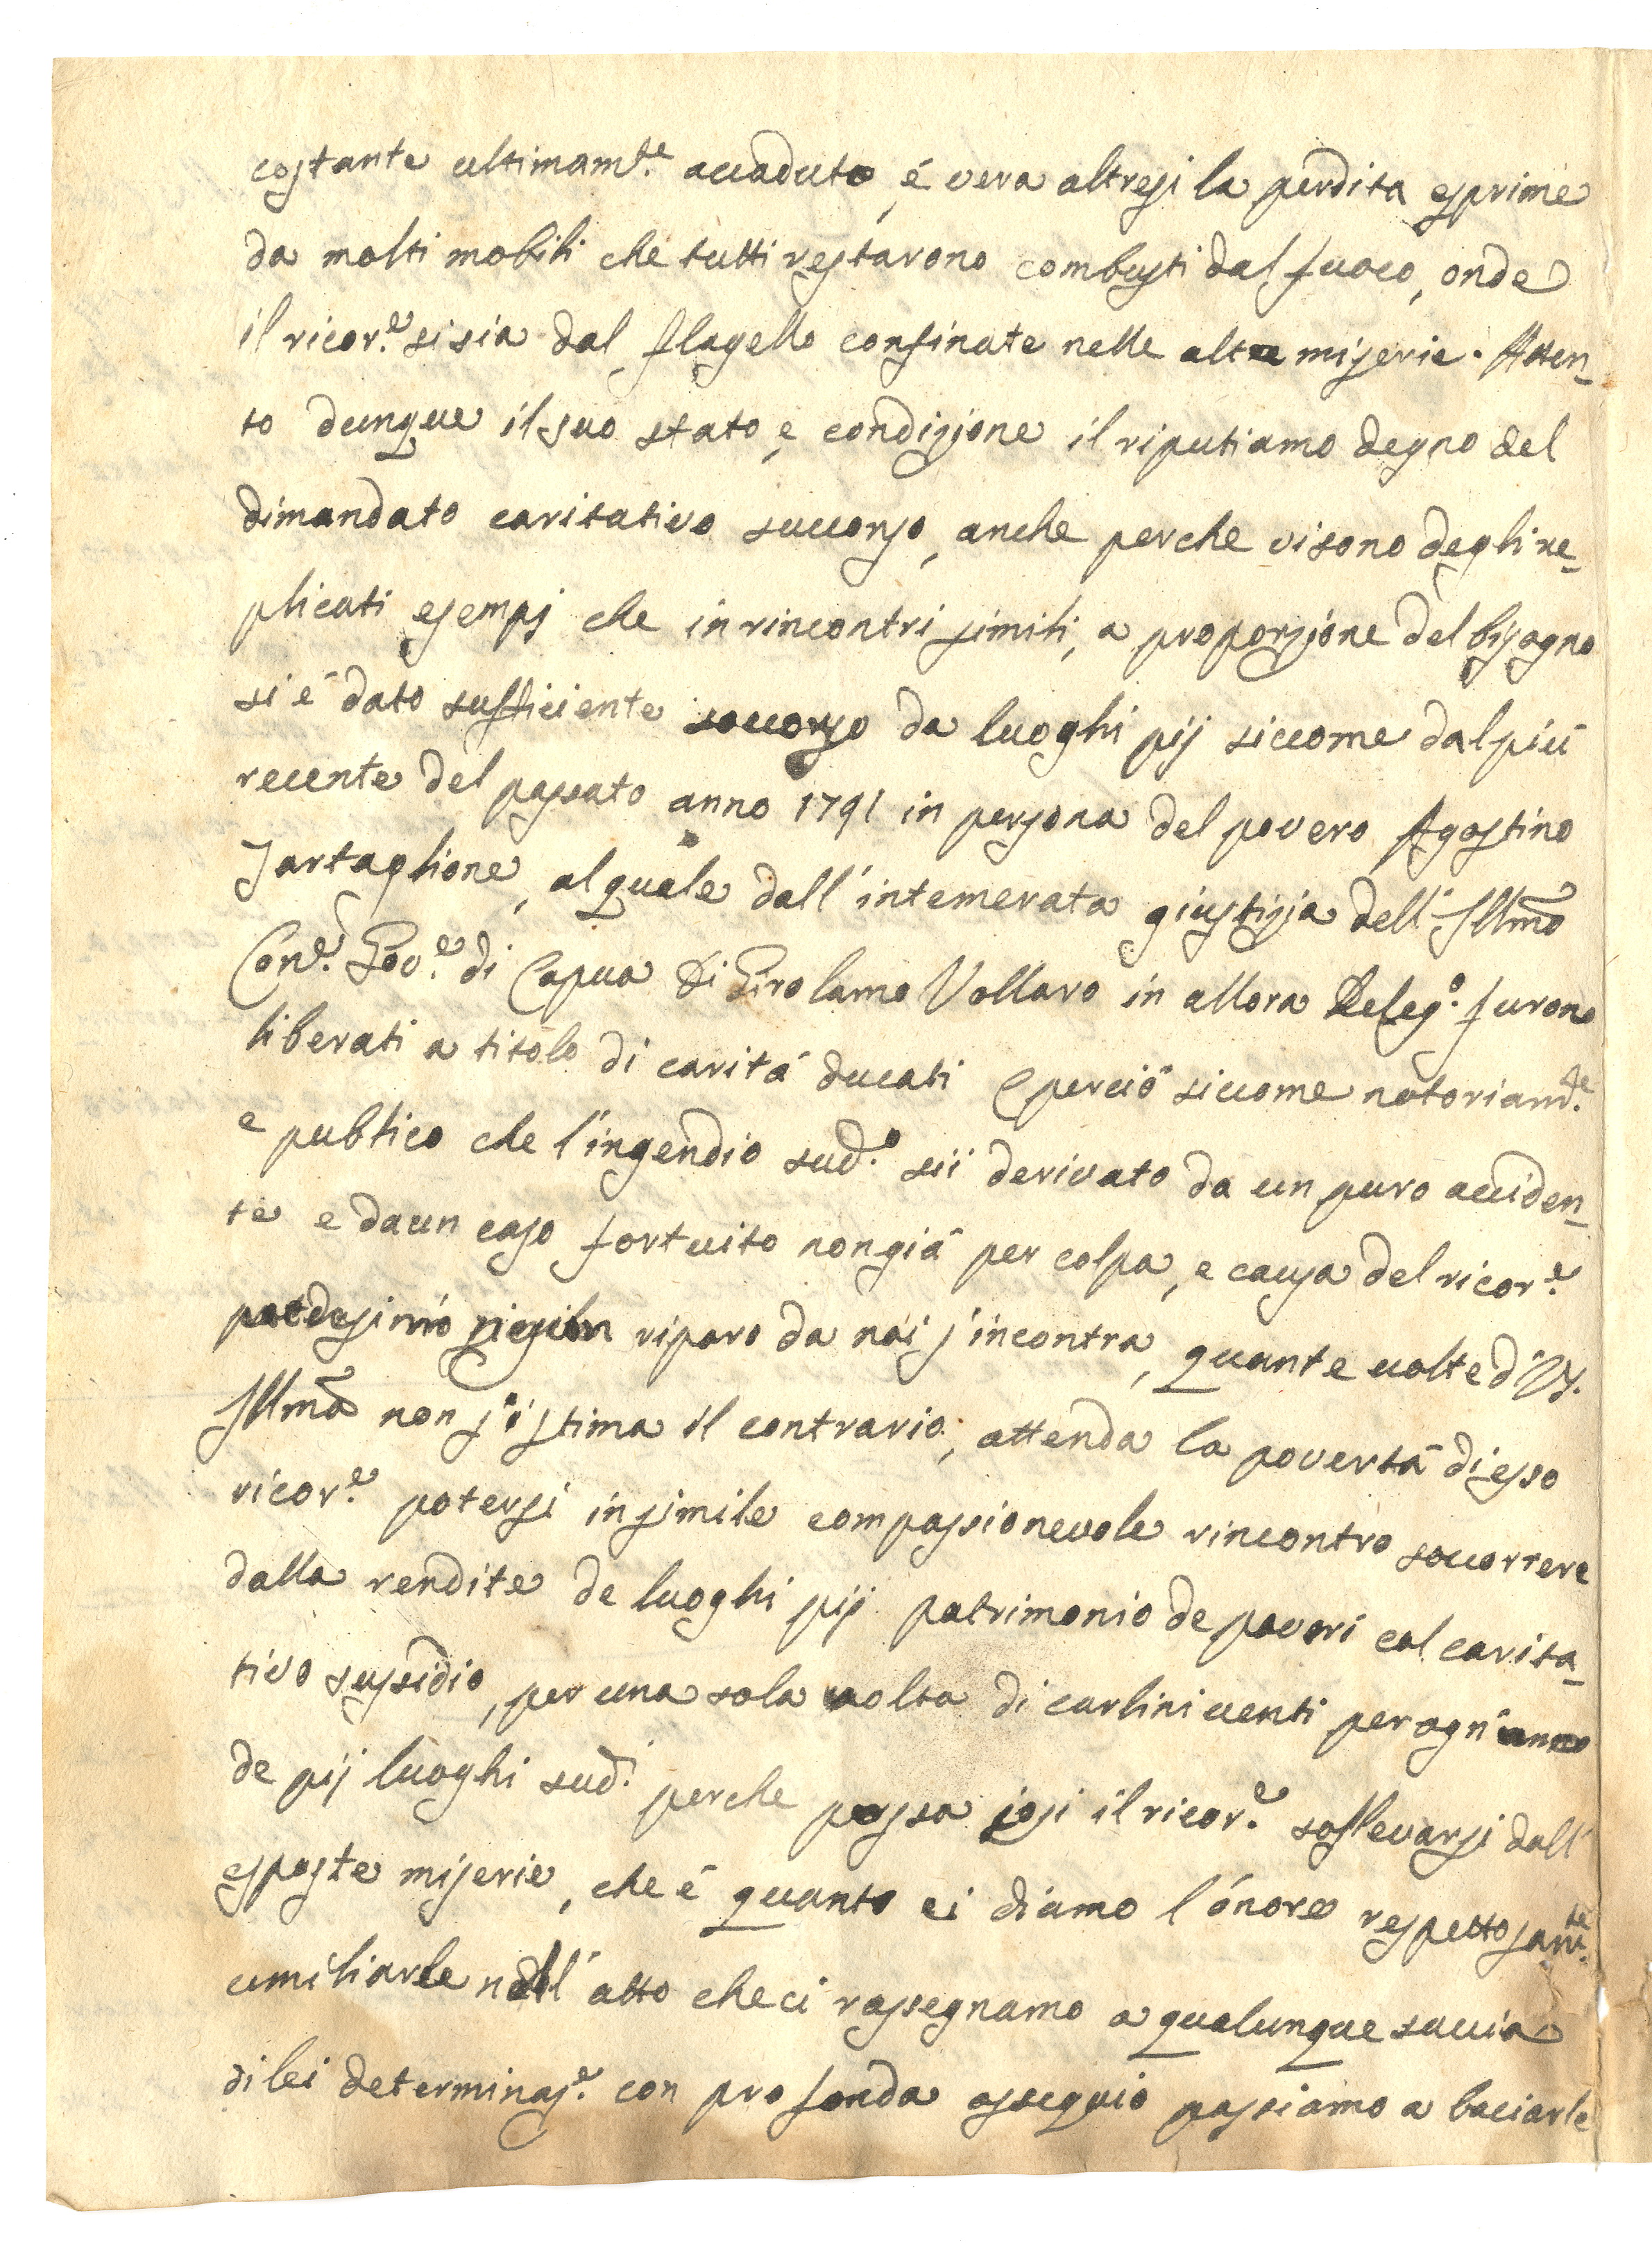 costante ultimam.te accaduto, é vera altresi la perdita esprime
da molti mobili che tutti restarono combusti dal fuoco, onde
il ricor.e si sia dal flagello confinate nelle altre miserie. Atten_
to dunque il suo stato, e condizione il riputiamo degno del
dimandato caritativo succorso, anche perche vi sono degli re_
plicati esempj che in rincontri simili, a proporzione del bisogno
si é dato sufficiente soccorso da luoghi pij siccome dal piú
recente del passato anno 1791 in persona del povero Agostino
Tartaglione, al quale dall' intemerata giustizia dell' Illmo
Con.e Gov.e di Capua Di Girolamo Vollaro in allora Deleg.o furono
liberati a titolo di caritá ducati e perció siccome notoriam.te
e publico che l'ingendio sud.o sii derivato da un puro acciden_
te e da un caso fortuito non giá per colpa, e causa del ricor.e
riparo da noi s'incontra, quante volte d V.S.
Illma non si stima il contrario, attenda la povertá di esso
ricor.e potersi in simile compassionevole rincontro soccorrere
dalla rendite de luoghi pij patrimonio de poveri col carita_
tivo sussidio, per una sola volta di carlini venti per ogn'
de pij luoghi sud.i perche possa josi il ricor.e sollevarsi dall'
esposte miserie, che é quanto ci diamo l'ónore respettosam.te
umiliarle nell' atto che ci rassegnamo a qualunque saccia
di lei determinaz.e con profonda ossequio passiamo a baciarle